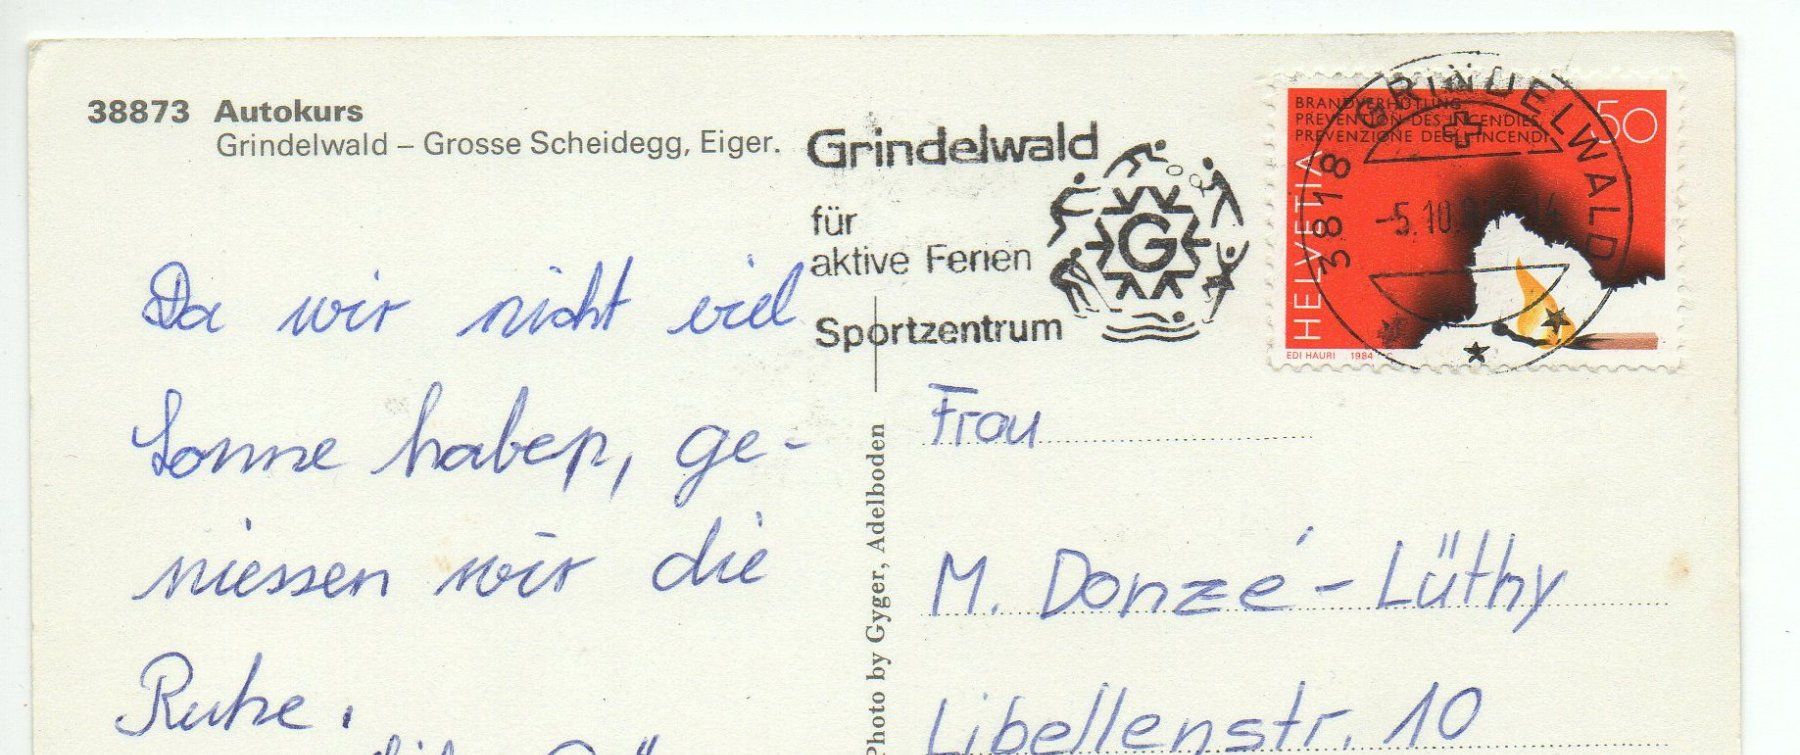 38873 Autokurs
Grindelwald – Grosse Scheidegg, Eiger.
Grindelwald
für
aktive Ferien
Sportzentrum
G
3818 GRINDELWALD
-5.10.
BRANDVERHÜTUNG
PRÉVENTION DES INCENDIES
PREVENZIONE DEGLI INCENDI
50
HELVETIA
EDI HAURI 1984
Da wir nicht viel
Sonne haben, ge-
niessen wir die
Ruhe.
Photo by Gyger, Adelboden
Frau
M. Donzé-Lüthy
Libellenstr. 10